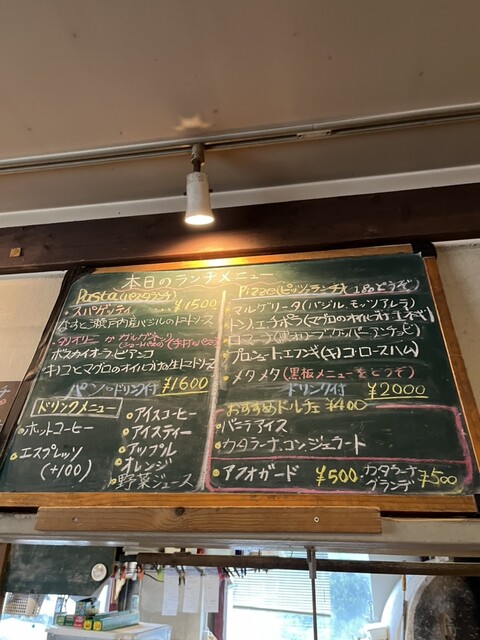 本日のランチメニュー
Pasta(パスタランチ)
スパゲッティ ¥1500
なすと瀬戸内産バジルのトマトソース
ボスカイオーラ・ビアンコ
キノコとマグロのオイルづけの生トマトソース
パン・ドリンク付 ¥1600
ドリンクメニュー
ホットコーヒー
エスプレッソ
(+100)
アイスコーヒー
アイスティー
アップル
オレンジ
野菜ジュース
Pizze(ピッツァランチ)
マルゲリータ(バジル、モッツアレラ)
トンノ・エ・チポラ(マグロのオイルづけ 玉ネギ)
ロマーナ
プロシュート・エ・フンギ(キノコ・ロースハム)
メタメタ(黒板メニューをどうぞ)
ドリンク付 ¥2000
おすすめドルチェ ¥400
バニラアイス
カタラーナ・コンジェラート
アフォガード ¥500
カタラーナグランデ ¥500